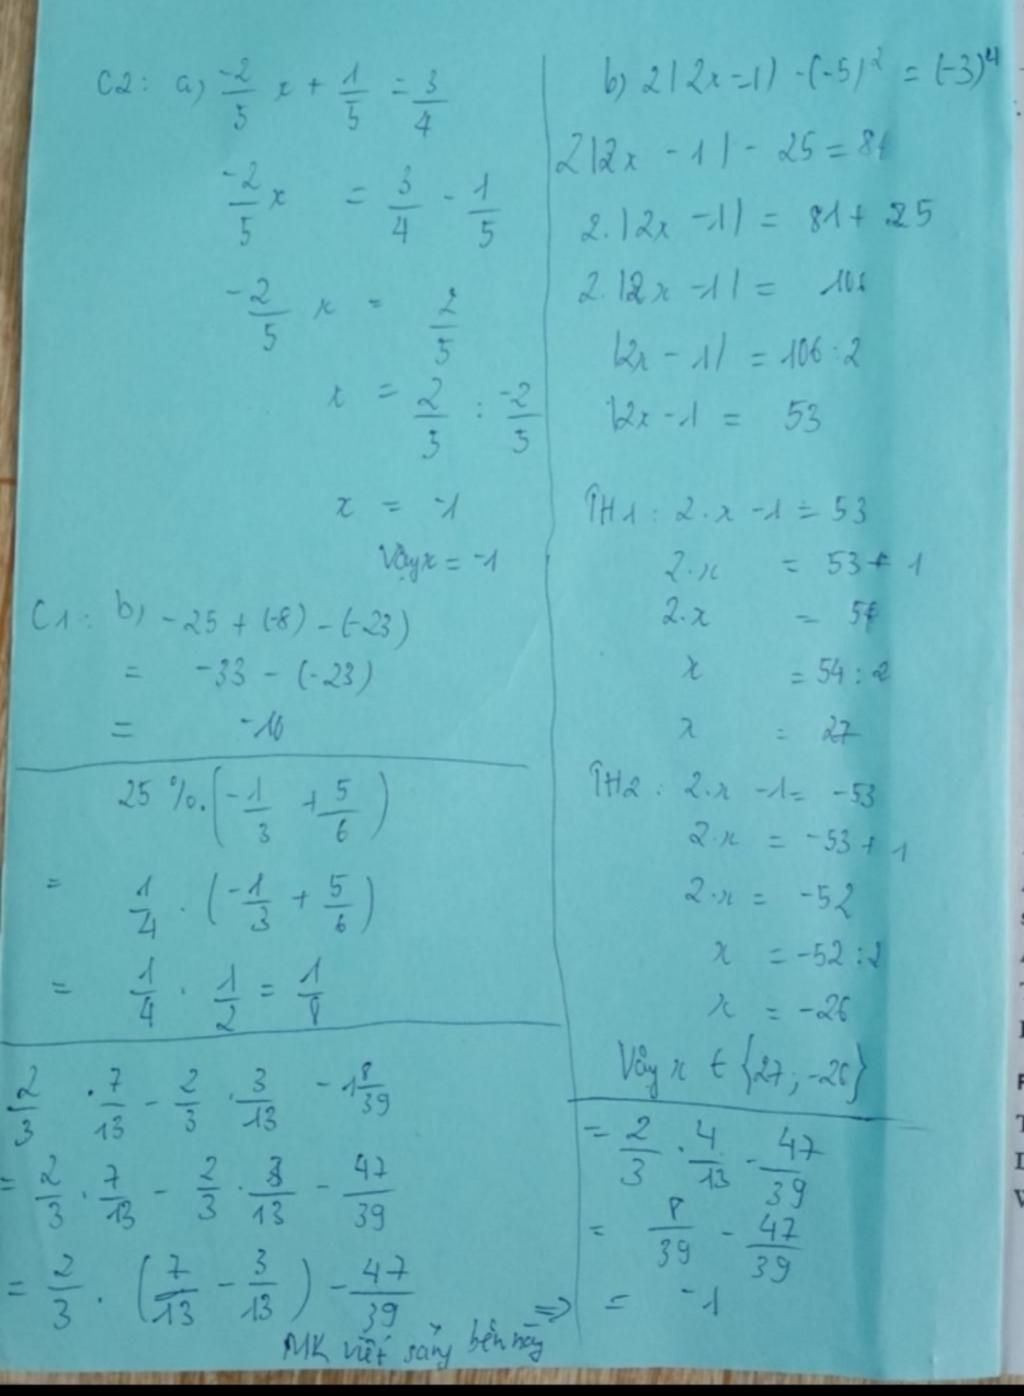 C2: a) -2/5 x + 1/5 = 3/4
-2/5 x = 3/4 - 1/5
-2/5 x = 2/5
x = 2/5 : -2/5
x = -1
Vậy x = -1
C1: b) -25 + (-8) - (-23)
= -33 - (-23)
= -10
25%.(-1/3 + 5/6)
= 1/4 . (-1/3 + 5/6)
= 1/4 . 1/2 = 1/8
2/3 . 7/13 - 2/3 . 3/13 - 1 8/39
= 2/3 . 7/13 - 2/3 . 3/13 - 47/39
= 2/3 . (7/13 - 3/13) - 47/39
MK viết sang bên này =>
b) 2|2x-1| - (-5)² = (-3)⁴
2|2x - 1| - 25 = 81
2.|2x - 1| = 81 + 25
2.|2x - 1| = 106
|2x - 1| = 106 : 2
|2x - 1 = 53
TH1: 2.x - 1 = 53
2.x = 53 + 1
2.x = 54
x = 54 : 2
x = 27
TH2: 2.x - 1 = -53
2.x = -53 + 1
2.x = -52
x = -52 : 2
x = -26
Vậy x ∈ {27; -26}
= 2/3 . 4/13 - 47/39
= 8/39 - 47/39
= -1